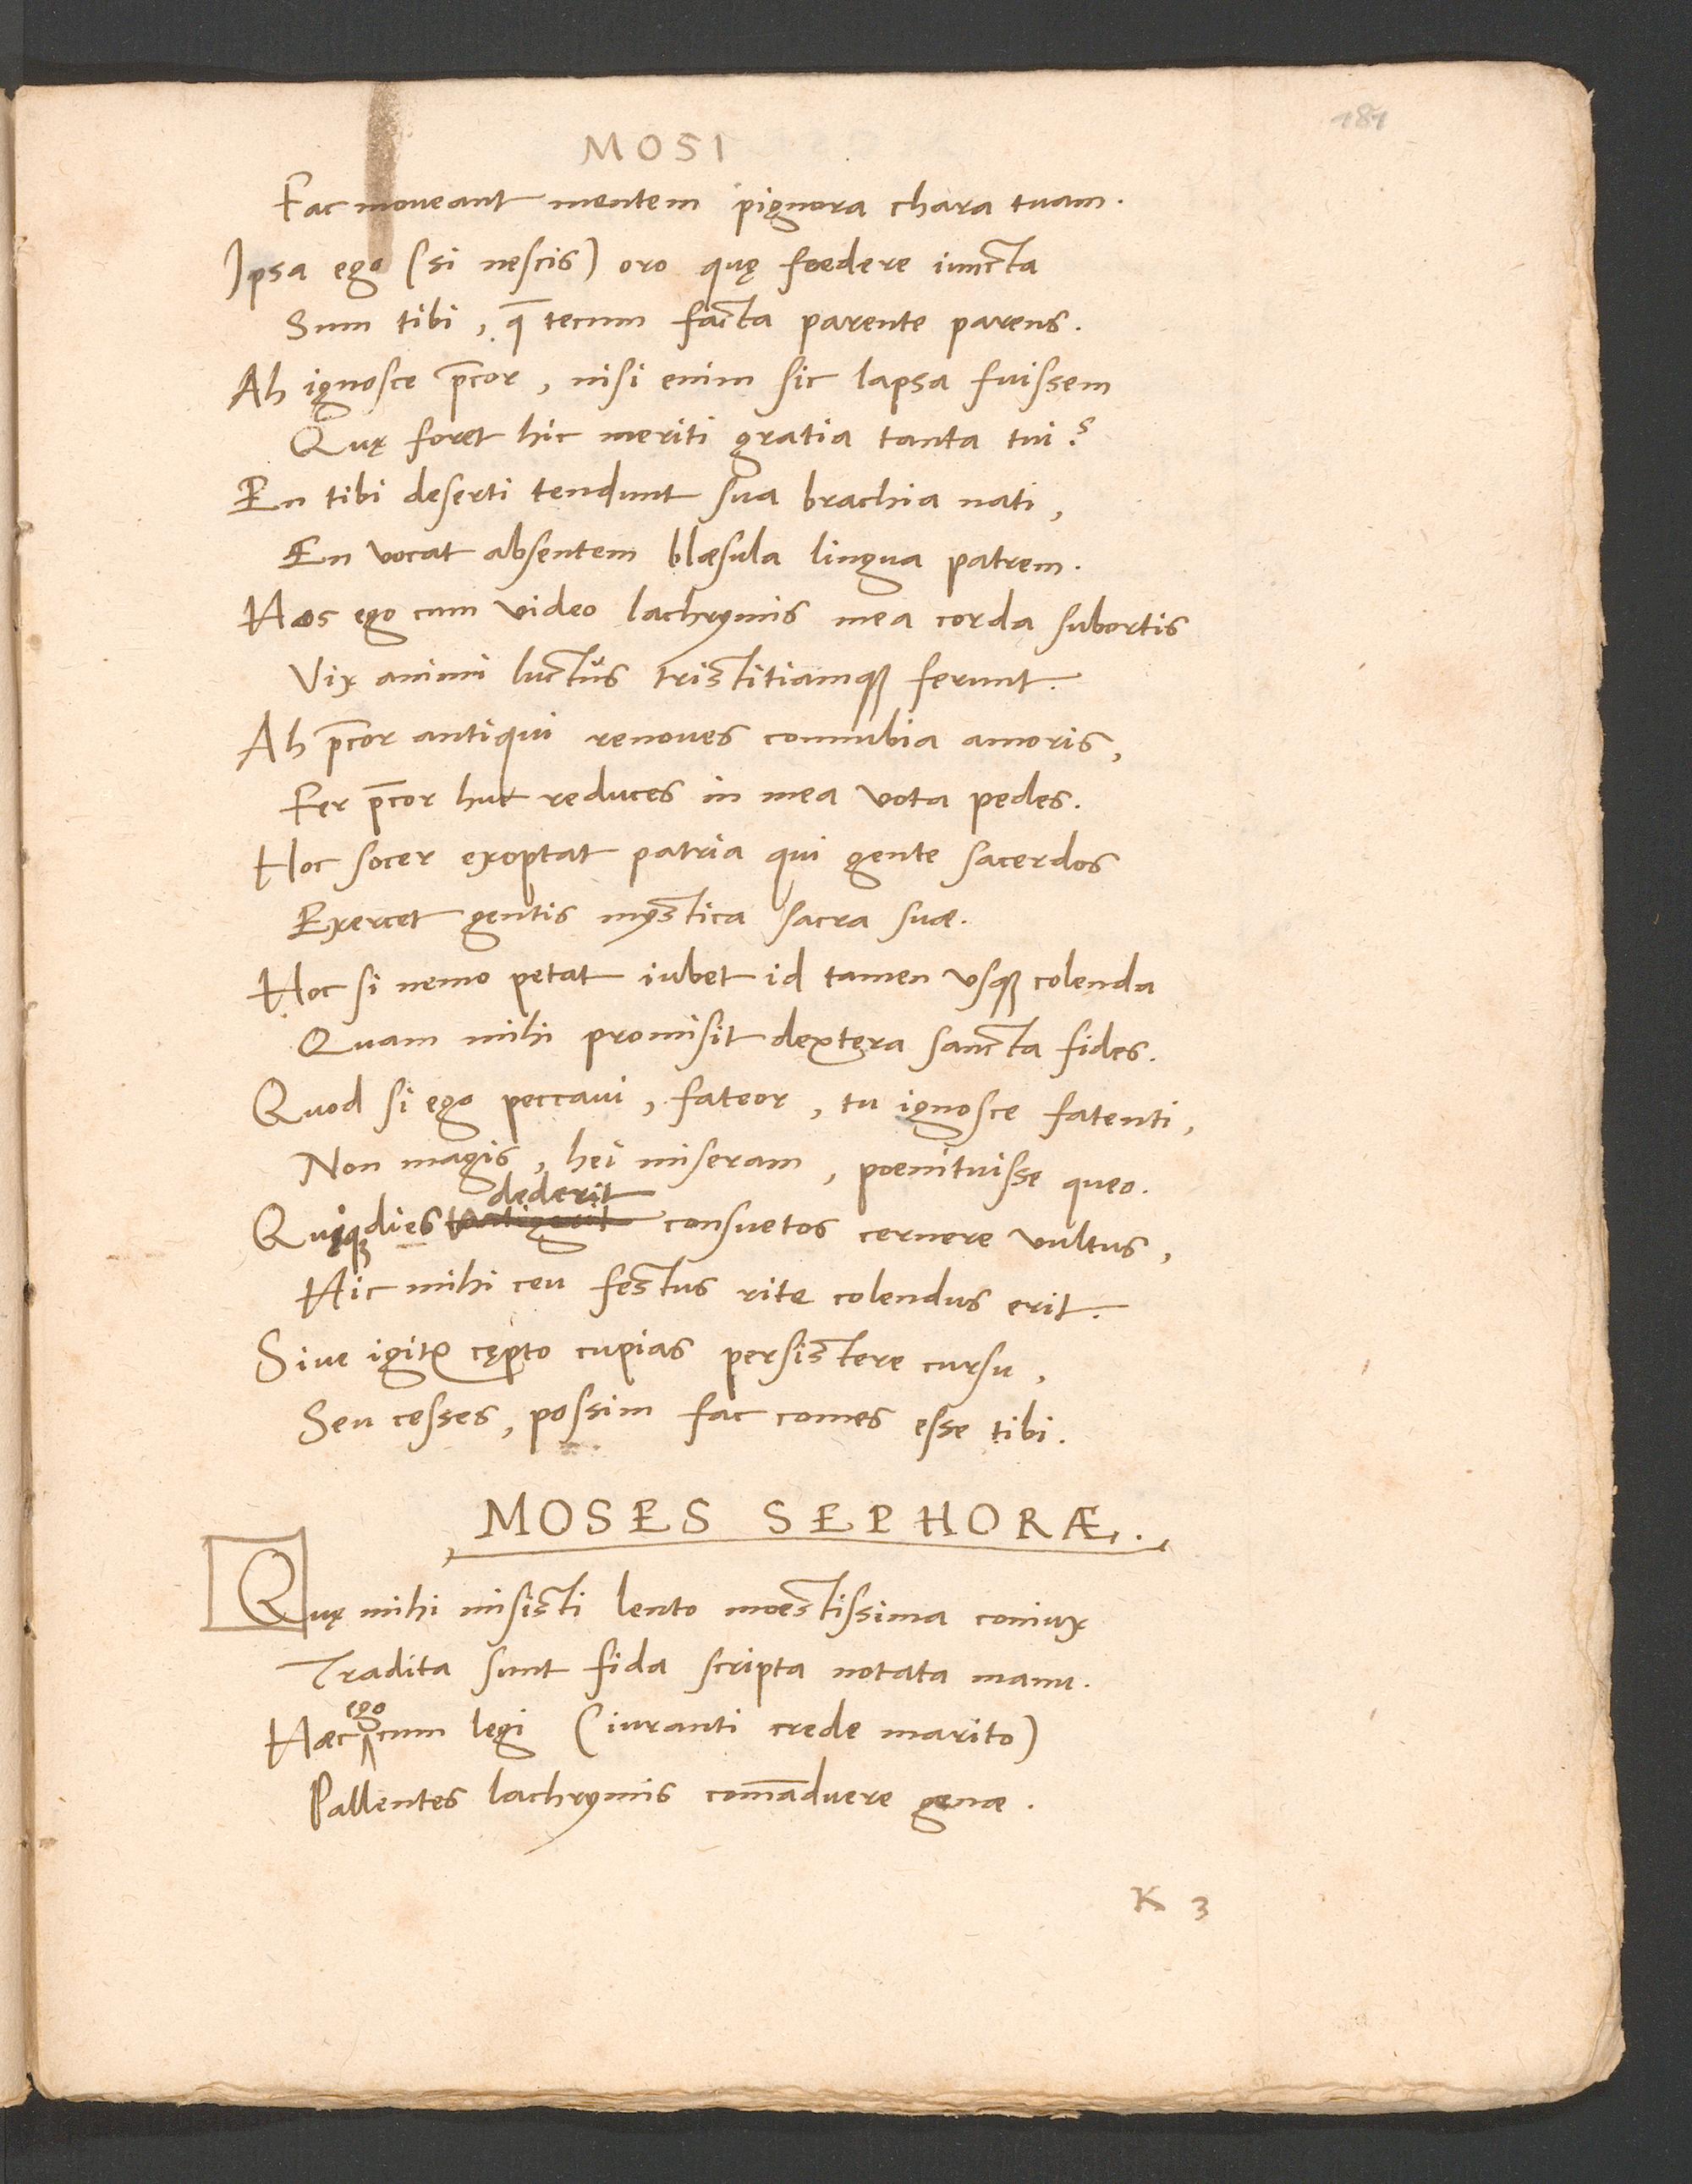 181
MOSI
Fac moveant mentem pignora chara tuam.
Ipsa ego (si nescis) oro quę foedere iuncta
Sum tibi, q̄ tecum facta parente parens.
Ah ignosce p̄cor, nisi enim sic lapsa fuissem
Quę foret hic meriti gratia tanta tui?
En tibi deserti tendunt sua brachia nati,
En vocat absentem blæsula lingua patrem.
Hos ego cum video lachrymis mea corda subortis
Vix animi luctus tristitiamq; ferunt.
Ah p̄cor antiqui renoues connubia amoris,
Fer p̄cor huc reduces in mea vota pedes.
Hoc socer exoptat patria qui gente sacerdos
Exercet gentis mystica sacra suæ.
Hoc si nemo petat iubet id tamen vsq; colenda
Quam mihi promisit dextera sancta fides.
Quod si ego peccaui, fateor, tu ignosce fatenti,
Non magis, hei miseram, poenituisse queo.
dederit
Quiq; dies consuetos cernere vultus,
Hic mihi ceu festus rite colendus erit.
Siue igitur cępto cupias persistere cursu,
Seu cesses, possim fac comes esse tibi.
MOSES SEPHORÆ.
Quę mihi misisti lento moestissima coniux
Tradita sunt fida scripta notata manu.
ego
Hæc cum legi (iuranti crede marito)
Pallentes lachrymis com̄aduere genæ.
K 3